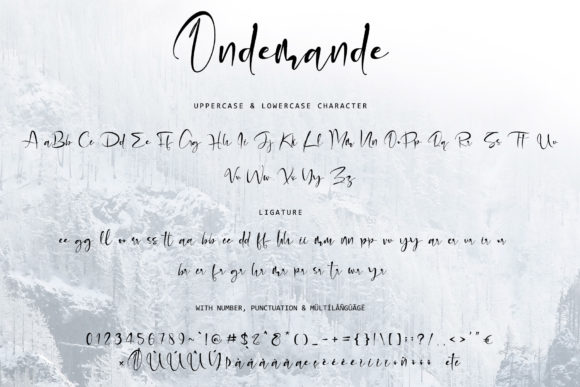 Ondemande
UPPERCASE & LOWERCASE CHARACTER
Aa Bb Cc Dd Ee Ff Gg Hh Ii Jj Kk Ll Mm Nn Oo Pp Qq Rr Ss Tt Uu
Vv Ww Xx Yy Zz
LIGATURE
ee gg ll oo rr ss tt aa bb cc dd ff hh ii mm nn pp vo yy ar er ur ir or
br cr fr gr hr mr pr sr tr wr yr
WITH NUMBER, PUNCTUATION & MÜLTÍLÃÑGÜÃGË
0123456789~`!@#$%^&*()_-+={}|\[]:;?/.,<>'"€
etc